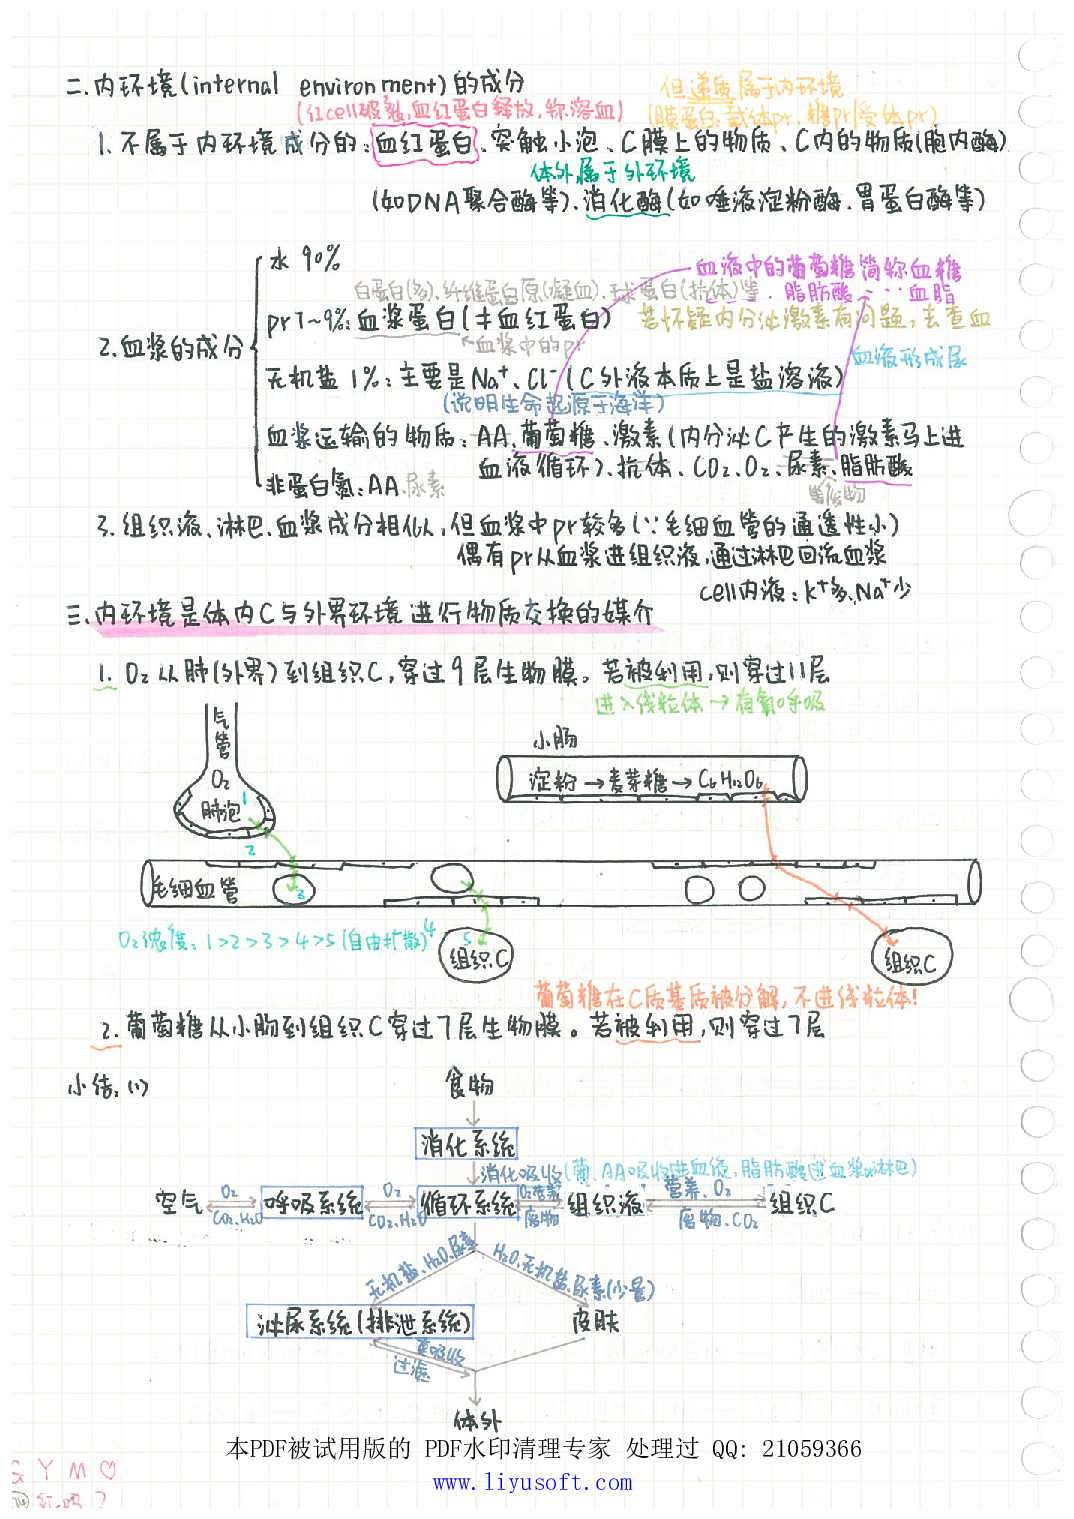 二.内环境(internal environment)的成分
但递质属于内环境
(红cell破裂,血红蛋白释放,称溶血)
(膜蛋白:载体pr、糖pr(受体pr)
1.不属于内环境成分的:血红蛋白、突触小泡、C膜上的物质、C内的物质(胞内酶)
体外属于外环境
(如DNA聚合酶等)、消化酶(如唾液淀粉酶、胃蛋白酶等)
水 90%
血液中的葡萄糖简称血糖
白蛋白(多)、纤维蛋白原(凝血)、球蛋白(抗体)等
脂肪酸……血脂
pr7~9%:血浆蛋白(≠血红蛋白)
若怀疑内分泌激素有问题,去查血
血浆中的pr
2.血浆的成分
血液形成尿
无机盐 1%:主要是Na⁺、Cl⁻(C外液本质上是盐溶液)
(说明生命起源于海洋)
血浆运输的物质:AA、葡萄糖、激素(内分泌C产生的激素马上进
血液循环)、抗体、CO₂、O₂、尿素、脂肪酸
非蛋白氮:AA、尿素
3.组织液、淋巴、血浆成分相似,但血浆中pr较多(∵毛细血管的通透性小)
偶有pr从血浆进组织液,通过淋巴回流血浆
cell内液:K⁺多、Na⁺少
三.内环境是体内C与外界环境进行物质交换的媒介
1. O₂从肺(外界)到组织C,穿过9层生物膜。若被利用,则穿过11层
进入线粒体→有氧呼吸
气管
O₂
肺泡
1
2
小肠
淀粉→麦芽糖→C₆H₁₂O₆
毛细血管
3
O₂浓度:1>2>3>4>5(自由扩散)
4
5
组织C
组织C
葡萄糖在C质基质被分解,不进线粒体!
2.葡萄糖从小肠到组织C穿过7层生物膜。若被利用,则穿过7层
小结:(1)
食物
消化系统
消化吸收(葡、AA吸收进血液,脂肪酸进血浆、淋巴)
空气 O₂ CO₂、H₂O 呼吸系统 O₂ CO₂、H₂O 循环系统 O₂营养 废物 组织液 营养、O₂ 废物、CO₂ 组织C
无机盐、H₂O、尿素
H₂O、无机盐、尿素(少量)
泌尿系统(排泄系统)
皮肤
重吸收
过滤
体外
本PDF被试用版的 PDF水印清理专家 处理过 QQ: 21059366
www.liyusoft.com
G Y M ♡